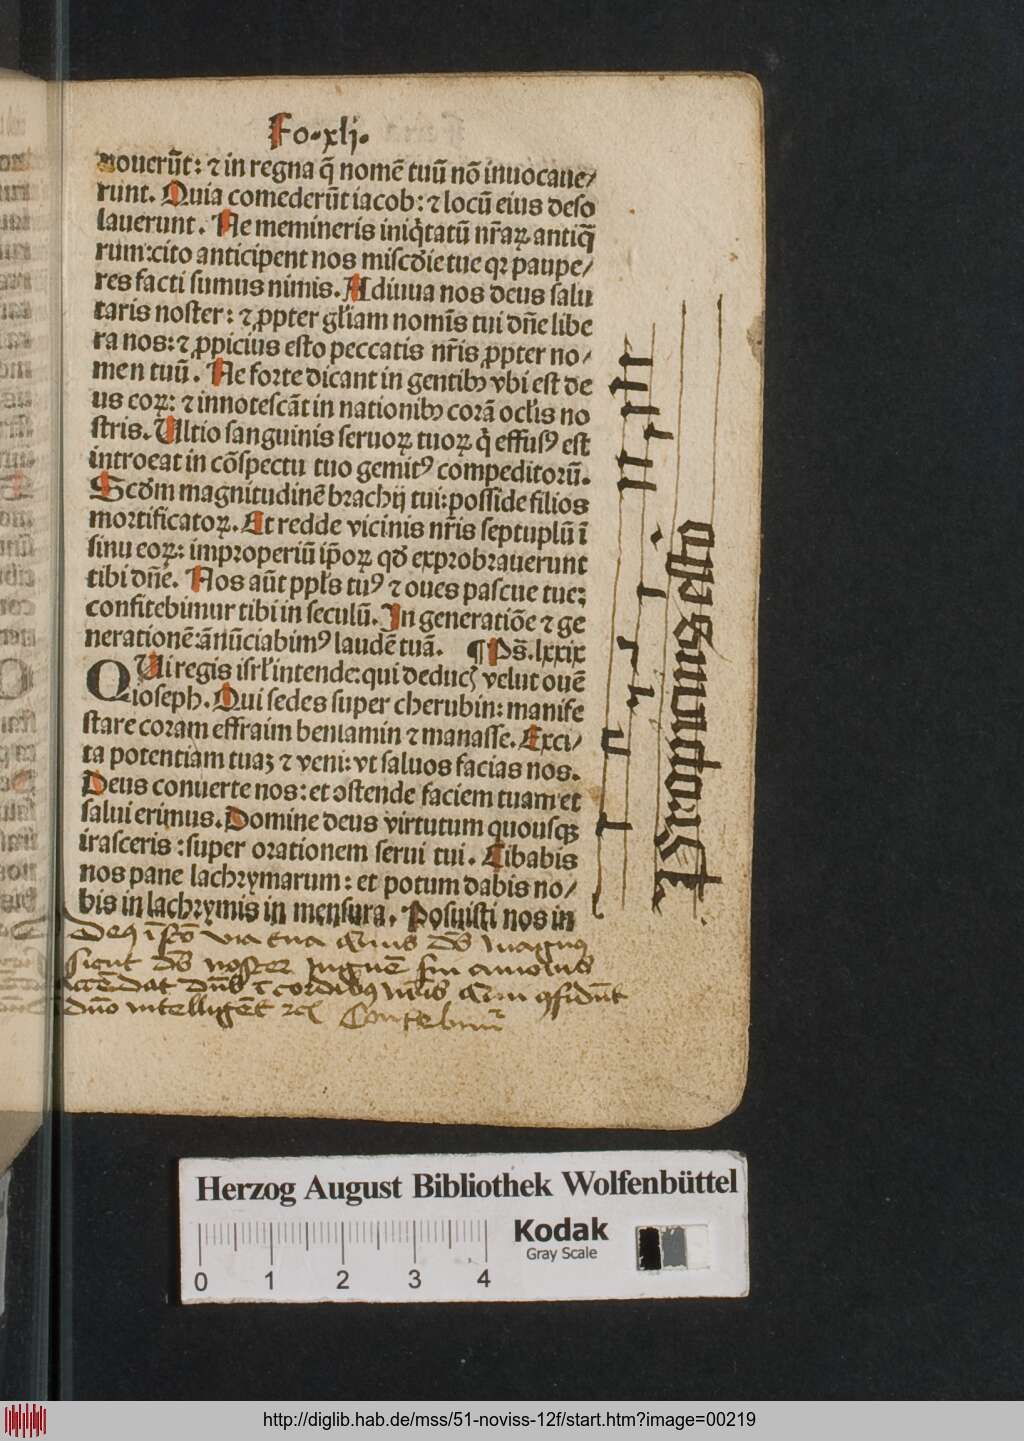 Fo.xlj.
nouerũt: ⁊ in regna q̃ nomẽ tuũ nõ inuocaue/
runt. Quia comederũt iacob: ⁊ locũ eius deso
lauerunt. Ne memineris iniq̃tatũ nr̃aꝝ antiq̃
rum:cito anticipent nos misc̄die tue qꝛ paupe/
res facti sumus nimis. Adiuua nos deus salu
taris noster: ⁊ ꝓpter gl̃iam nomĩs tui dñe libe
ra nos: ⁊ ꝓpicius esto peccatis nr̃is ꝓpter no/
men tuũ. Ne forte dicant in gentibꝰ vbi est de
us eoꝝ: ⁊ innotescãt in nationibꝰ corã ocl̃is no
stris. Ultio sanguinis seruoꝝ tuoꝝ q̇ effusꝰ est
introeat in cõspectu tuo gemitꝰ compeditorũ.
Scd̃m magnitudinẽ brachij tui:posside filios
mortificatoꝝ. Et redde vicinis nr̃is septuplũ ĩ
sinu eoꝝ: improperiũ ip̃oꝝ qď exprobrauerunt
tibi dñe. Nos aũt ppl̃s tuꝰ ⁊ oues pascue tue:
confitebimur tibi in seculũ. In generatiõe ⁊ ge
nerationẽ:ãnũciabimꝰ laudẽ tuã. ¶ Ps̃.lxxix
QUi regis isrl̃ intende:qui deducꝭ velut ouẽ
ioseph. Qui sedes super cherubin: manife
stare coram effraim beniamin ⁊ manasse. Exci/
ta potentiam tuaꝫ ⁊ veni: vt saluos facias nos.
Deus conuerte nos: et ostende faciem tuam et
salui erimus. Domine deus virtutum quousqꝫ
irasceris :super orationem serui tui. Cibabis
nos pane lachrymarum: et potum dabis no/
bis in lachrymis in mensura. Posuisti nos in
Deꝰ ĩ scõ via tua Quis dš magnꝰ
sicut dš noster
dñš ĩ cordibꝰ nr̃is
dño intelligẽt
Herzog August Bibliothek Wolfenbüttel
Kodak
Gray Scale
0 1 2 3 4
http://diglib.hab.de/mss/51-noviss-12f/start.htm?image=00219